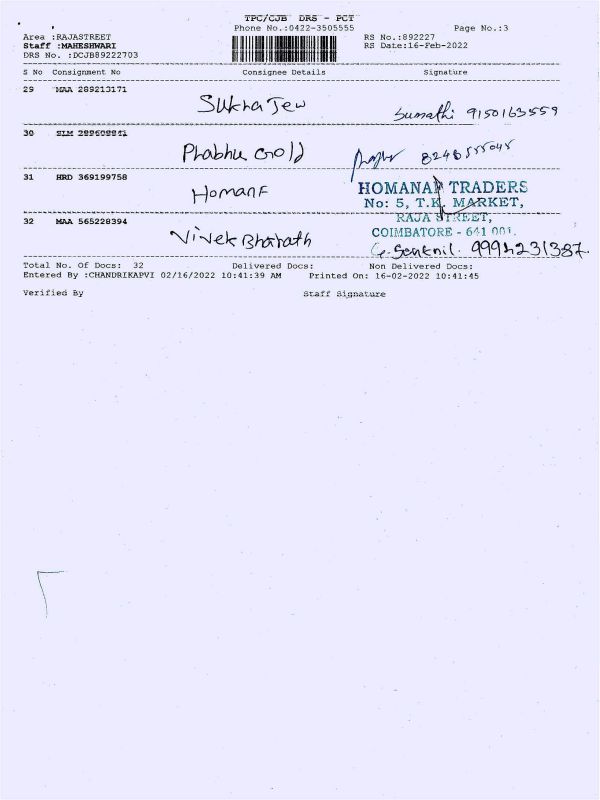 TPC/CJB DRS - PCT
Phone No.:0422-3505555 Page No.:3
Area :RAJASTREET RS No.:892227
Staff :MAHESHWARI RS Date:16-Feb-2022
DRS No. :DCJB89222703
S No Consignment No Consignee Details Signature
29 MAA 289213171
Sukra Jew Sumathi 9150163559
30 SLM
Prabhu Gold
31 HRD 369199758
HomanF HOMANAP TRADERS
No: 5, T.K. MARKET,
RAJA STREET,
COIMBATORE - 641 001.
32 MAA 565228394
Vivek Bharath
Total No. Of Docs: 32 Delivered Docs: Non Delivered Docs:
Entered By :CHANDRIKAPVI 02/16/2022 10:41:39 AM Printed On: 16-02-2022 10:41:45
Verified By Staff Signature